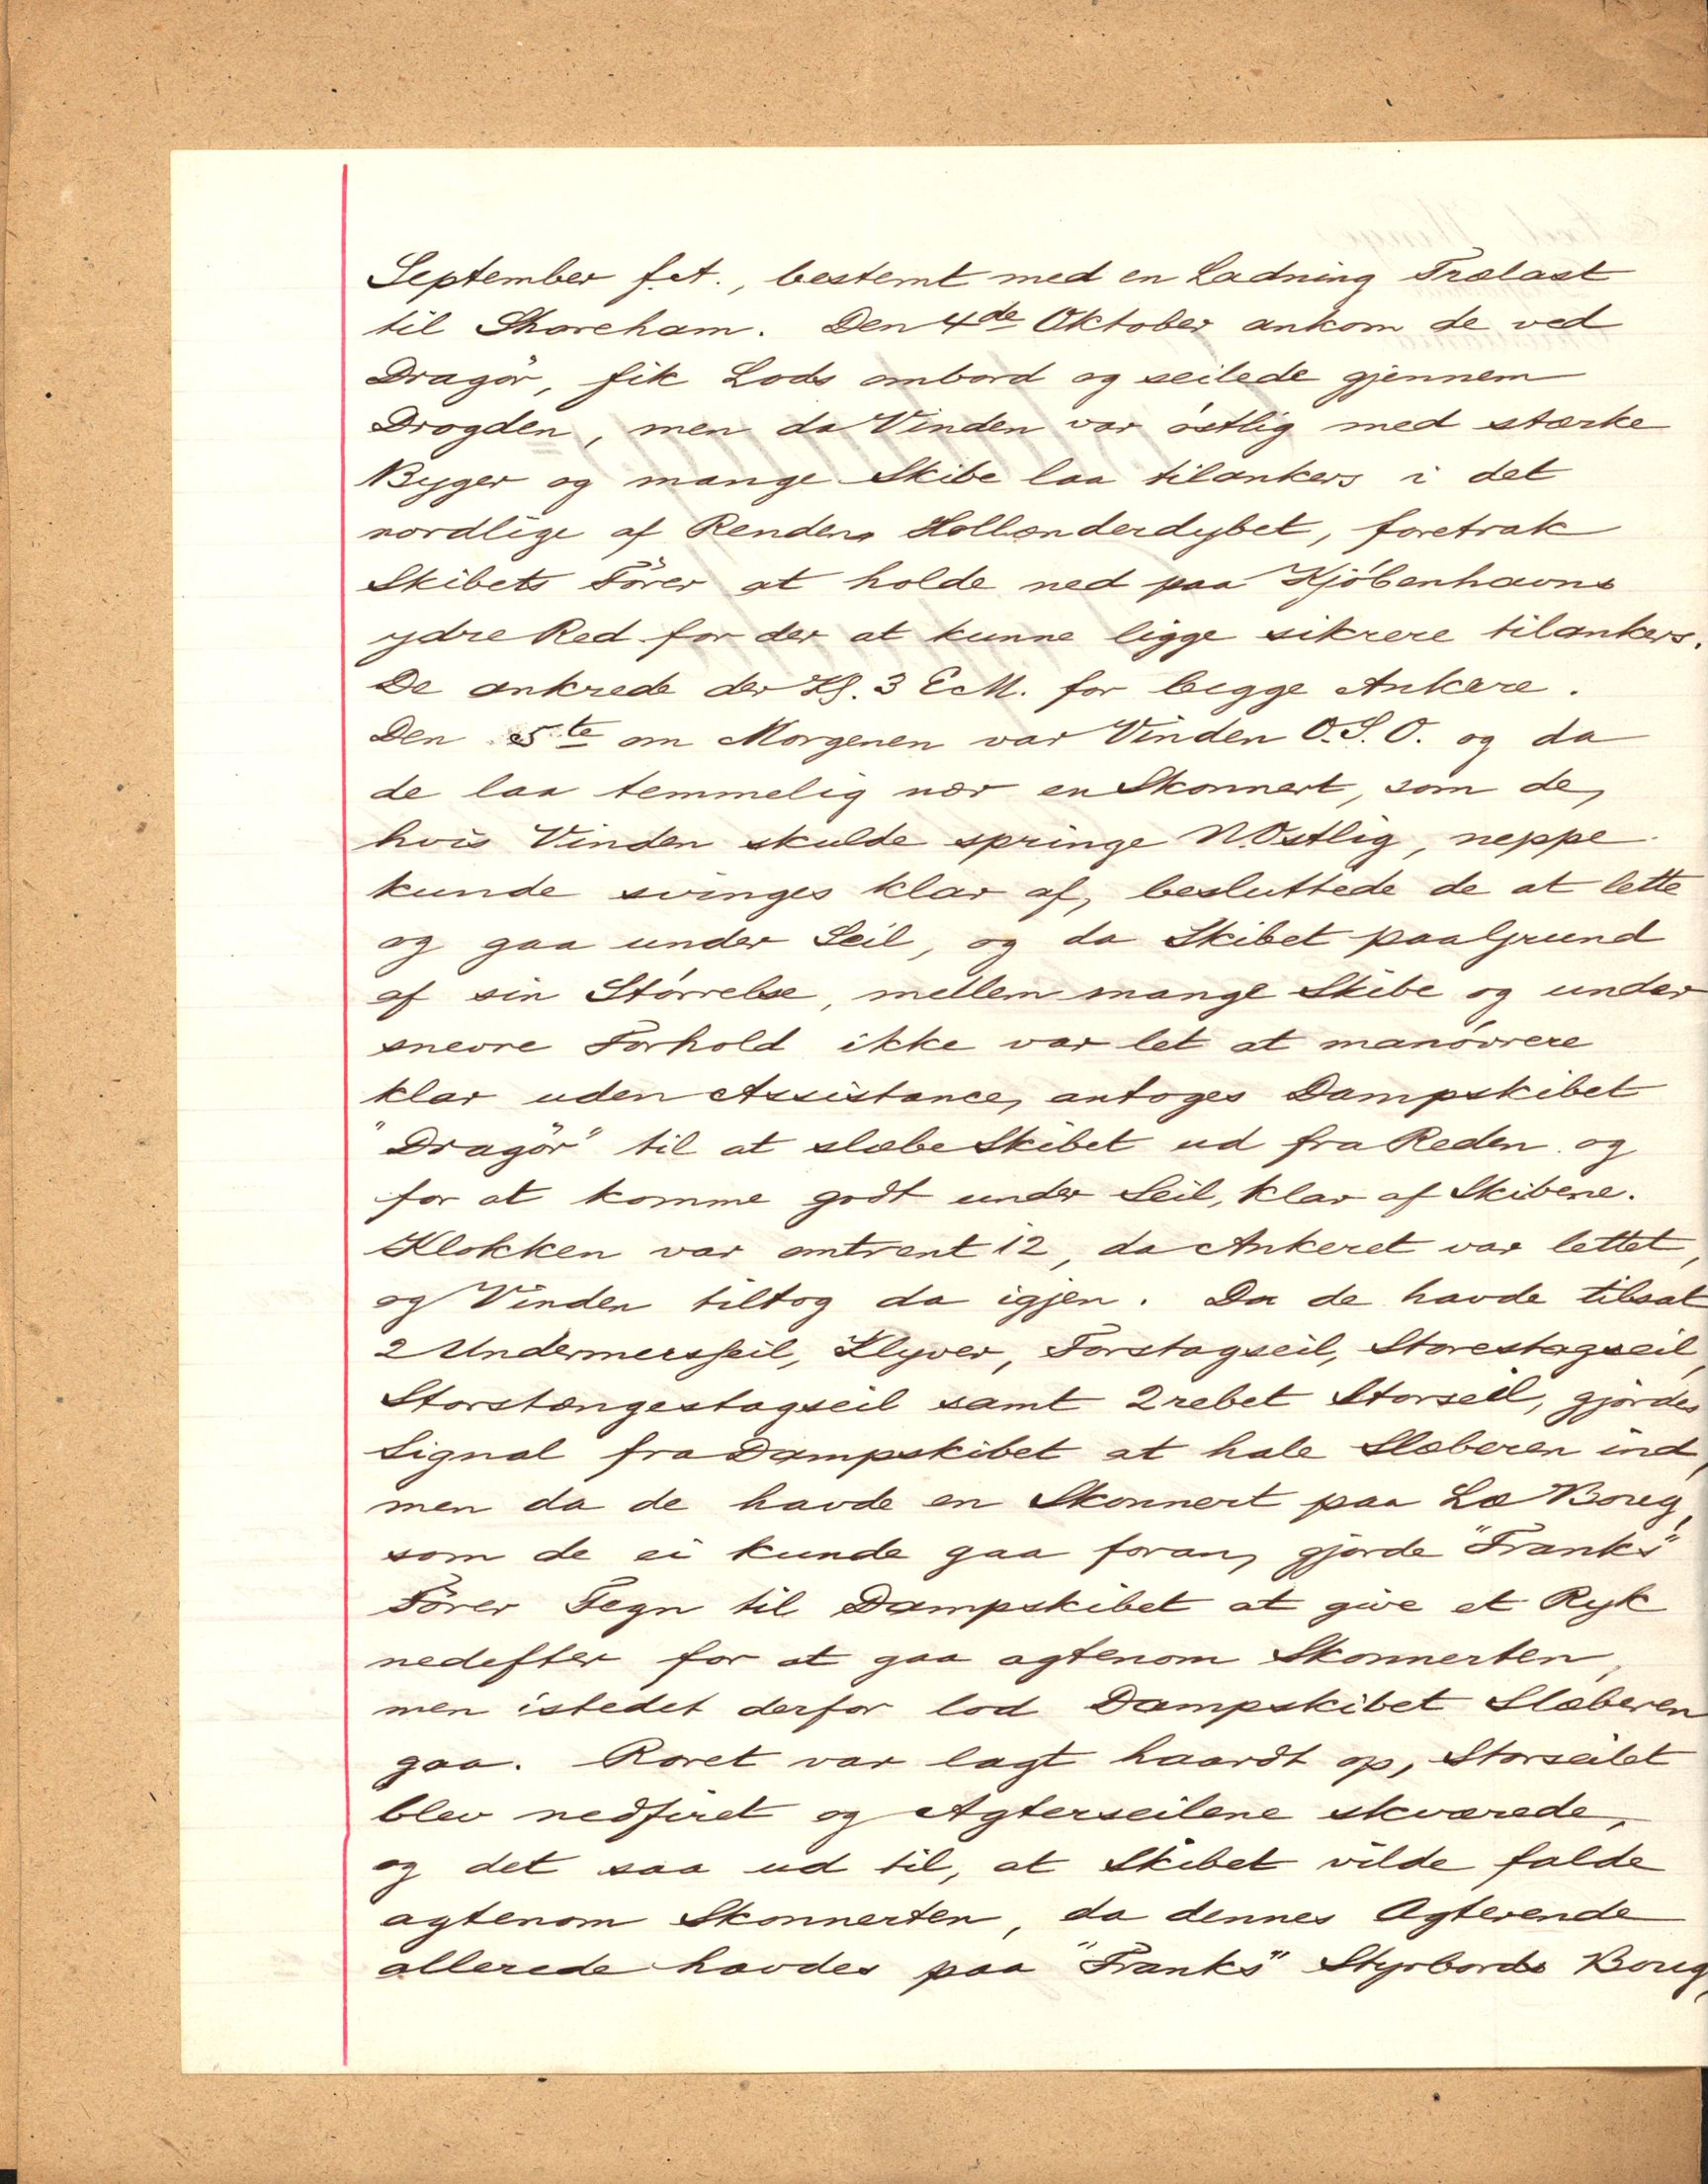 September f.A., bestemt med en Ladning Trælast
til Shoreham. Den 4de Oktober ankom de ved
Dragör, fik Lods ombord og seilede gjennem
Drogden, men da Vinden var östlig med stærke
Byger og mange Skibe laa tilankers i det
nordlige af Renden, Hollænderdybet, foretrak
Skibets Förer at holde ned paa Kjöbenhavns
ydre Red for der at kunne ligge sikrere tilankers.
De ankrede der Kl. 3 E.M. for begge Ankere.
Den 5te om Morgenen var Vinden O.S.O. og da
de laa temmelig nær en Skonnert, som de,
hvis Vinden skulde springe N.Ostlig, neppe
kunde svinges klar af, besluttede de at lette
og gaa under Seil, og da Skibet paaGrund
af sin Störrelse, mellem mange Skibe og under
snevre Forhold ikke var let at manövrere
klar uden Assistance, antoges Dampskibet
"Dragör" til at slæbe Skibet ud fra Reden og
for at komme godt under Seil, klar af Skibene.
Klokken var omtrent 12, da Ankeret var lettet,
og Vinden tiltog da igjen. Da de havde tilsat
2 Undermersseil, Klyver, Forstagseil, Storestagseil,
Storstængestagseil samt 2 rebet Storseil, gjordes
Signal fra Dampskibet at hale Slæberen ind,
men da de havde en Skonnert paa Læ Boug,
som de ei kunde gaa foran, gjorde "Franks"
Förer Tegn til Dampskibet at give et Ryk
nedefter for at gaa agtenom Skonnerten,
men istedet derfor lod Dampskibet Slæberen
gaa. Roret var lagt haardt op, Storseilet
blev nedfiret og Agterseilene skværede,
og det saa ud til, at Skibet vilde falde
agtenom Skonnerten, da dennes Agterende
allerede havdes paa "Franks" Styrbords Boug,